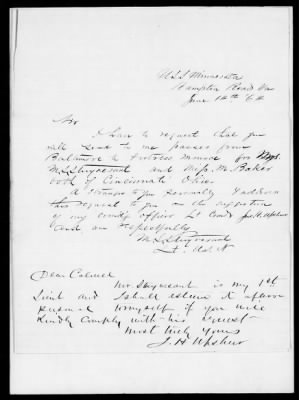 U.S.S. Minnesota
Hampton Roads Va
June 14th '64
Sir
I have to request that you
will send to me passes from
Baltimore to Fortress Monroe for
M. L. Stuyvesant and Miss M. Baker
both of Cincinnati Ohio.
A stranger to you personally I address
this request to you on the suggestion
of my comdg officer Lt Comdr J. H. Upshur
and am respectfully
M. Stuyvesant
Lt. U.S.N
Dear Colonel
Mr. Stuyvesant is my 1st
Lieut and I shall esteem it a favor
personal to myself if you will
kindly comply with his request
Most truly yours
J. H. Upshur